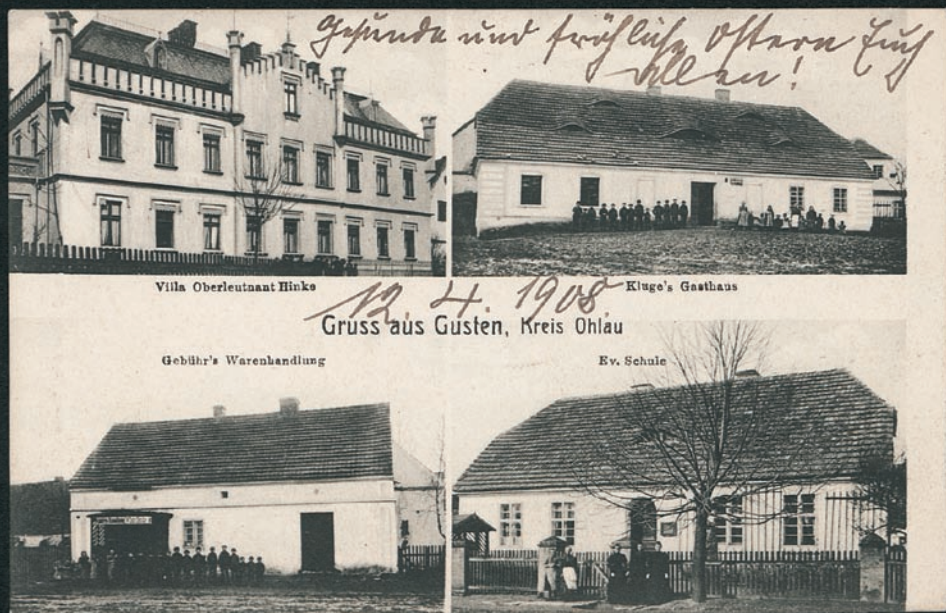 Gesunde und fröhliche Ostern Euch
allen!
Villa Oberleutnant Hinke
Kluge's Gasthaus
12. 4. 1908.
Gruss aus Gusten, Kreis Ohlau
Gebühr's Warenhandlung
Ev. Schule